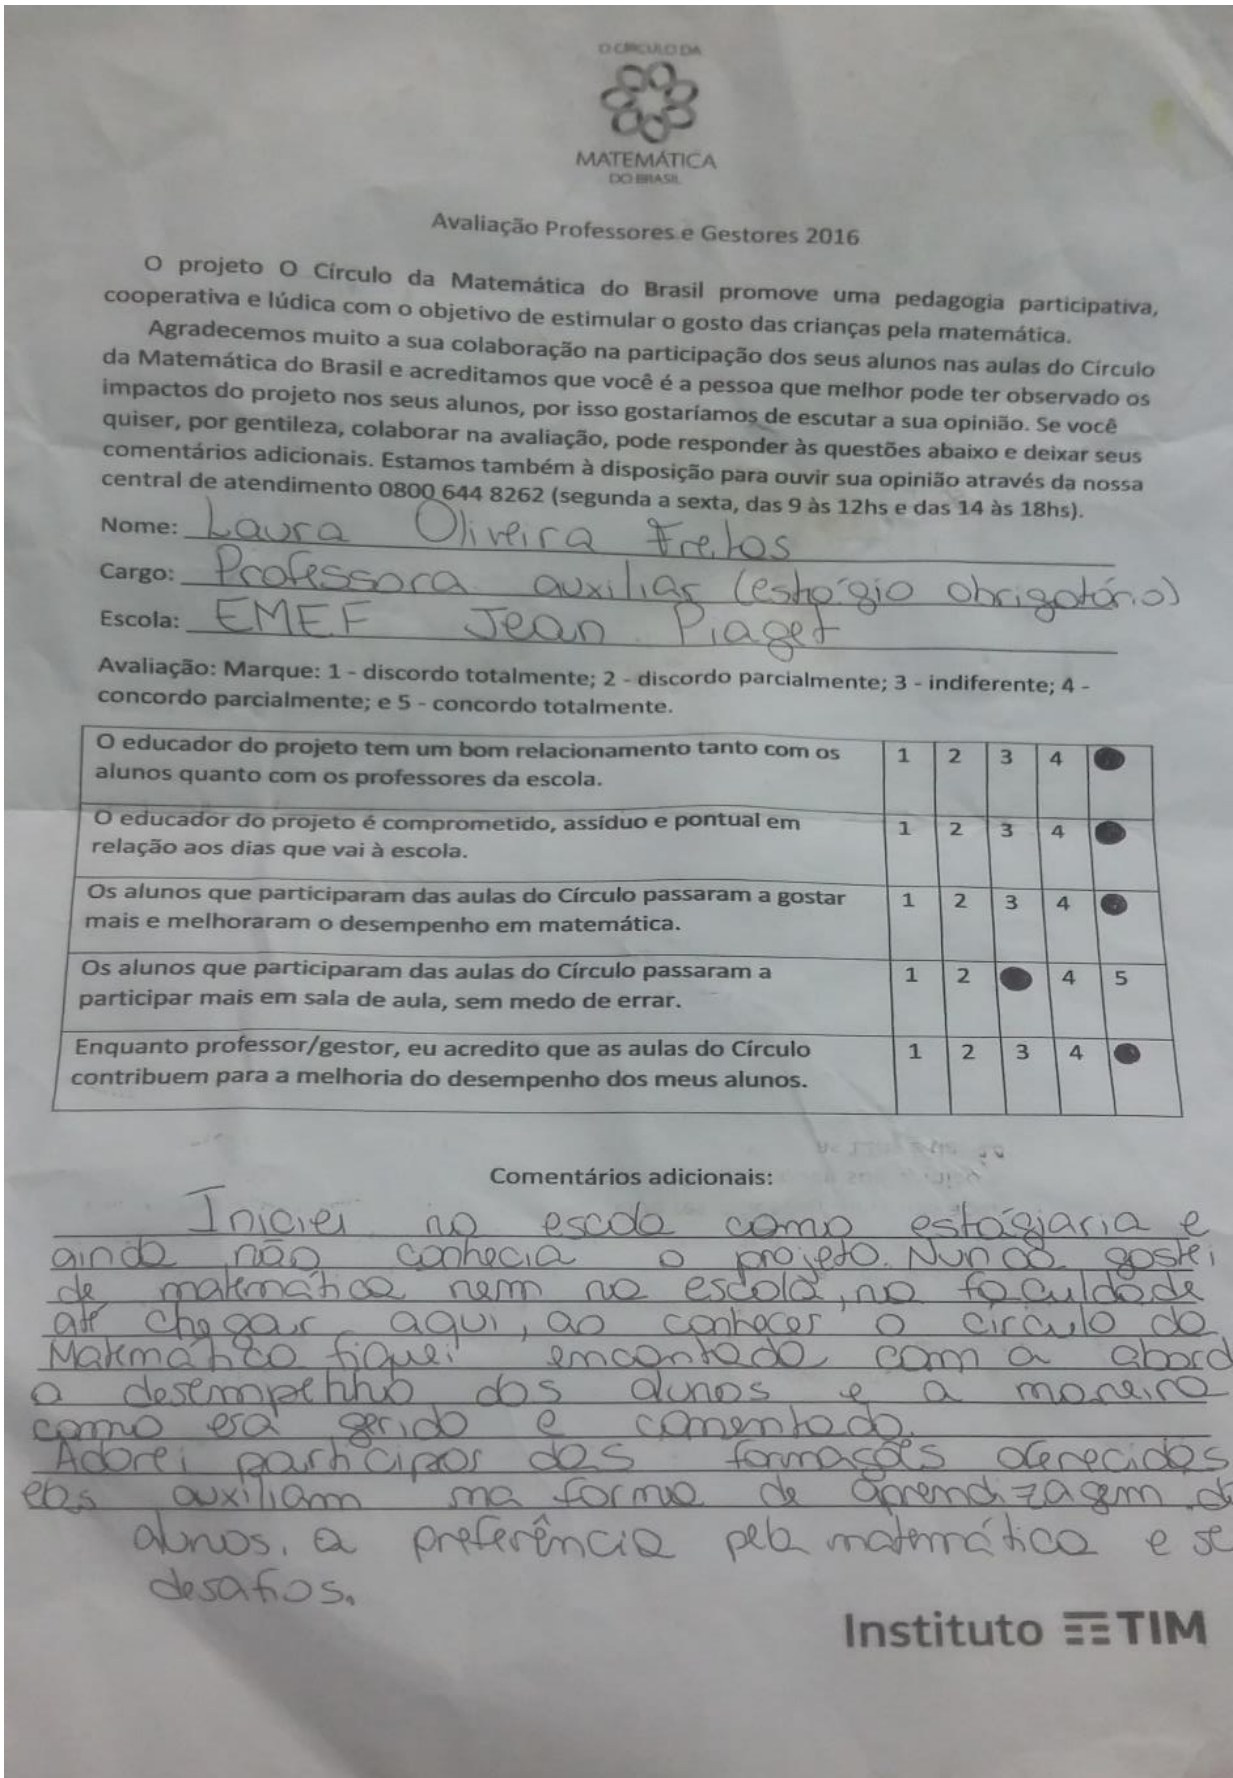 O CÍRCULO DA
MATEMÁTICA
DO BRASIL
Avaliação Professores e Gestores 2016
O projeto O Círculo da Matemática do Brasil promove uma pedagogia participativa,
cooperativa e lúdica com o objetivo de estimular o gosto das crianças pela matemática.
Agradecemos muito a sua colaboração na participação dos seus alunos nas aulas do Círculo
da Matemática do Brasil e acreditamos que você é a pessoa que melhor pode ter observado os
impactos do projeto nos seus alunos, por isso gostaríamos de escutar a sua opinião. Se você
quiser, por gentileza, colaborar na avaliação, pode responder às questões abaixo e deixar seus
comentários adicionais. Estamos também à disposição para ouvir sua opinião através da nossa
central de atendimento 0800 644 8262 (segunda a sexta, das 9 às 12hs e das 14 às 18hs).
Nome: Laura Oliveira Freitas
Cargo: Professora auxiliar (estágio obrigatório)
Escola: EMEF Jean Piaget
Avaliação: Marque: 1 - discordo totalmente; 2 - discordo parcialmente; 3 - indiferente; 4 -
concordo parcialmente; e 5 - concordo totalmente.
O educador do projeto tem um bom relacionamento tanto com os
alunos quanto com os professores da escola. 1 2 3 4
O educador do projeto é comprometido, assíduo e pontual em
relação aos dias que vai à escola. 1 2 3 4
Os alunos que participaram das aulas do Círculo passaram a gostar
mais e melhoraram o desempenho em matemática. 1 2 3 4
Os alunos que participaram das aulas do Círculo passaram a
participar mais em sala de aula, sem medo de errar. 1 2 4 5
Enquanto professor/gestor, eu acredito que as aulas do Círculo
contribuem para a melhoria do desempenho dos meus alunos. 1 2 3 4
Comentários adicionais:
Iniciei na escola como estágiaria e
ainda não conhecia o projeto. Nunca gostei
de matemática nem na escola, na faculdade
até chegar aqui, ao conhecer o círculo da
Matemática fiquei encantada com a abord
o desempenho dos alunos e a maneira
como era gerido e comentado.
Adorei participar das formações oferecidas
elas auxiliam na forma de aprendizagem d
alunos, a preferência pela matemática e se
desafios.
Instituto TIM